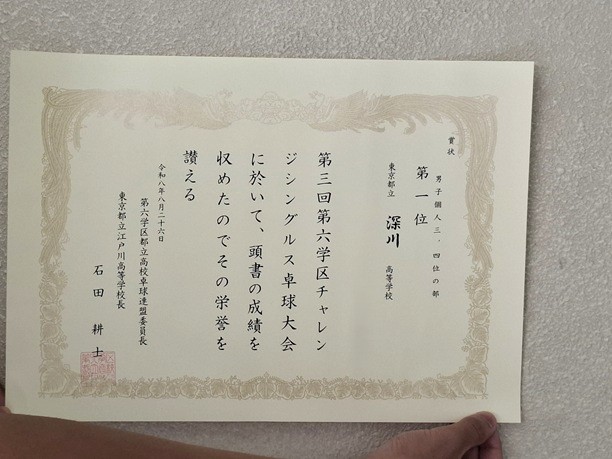 賞状
男子個人三、四位の部
第一位
東京都立 深川 高等学校
第三回第六学区チャレン
ジシングルス卓球大会
に於いて、頭書の成績を
収めたのでその栄誉を
讃える
令和八年八月二十六日
第六学区都立高校卓球連盟委員長
東京都立江戸川高等学校長
石田 耕士